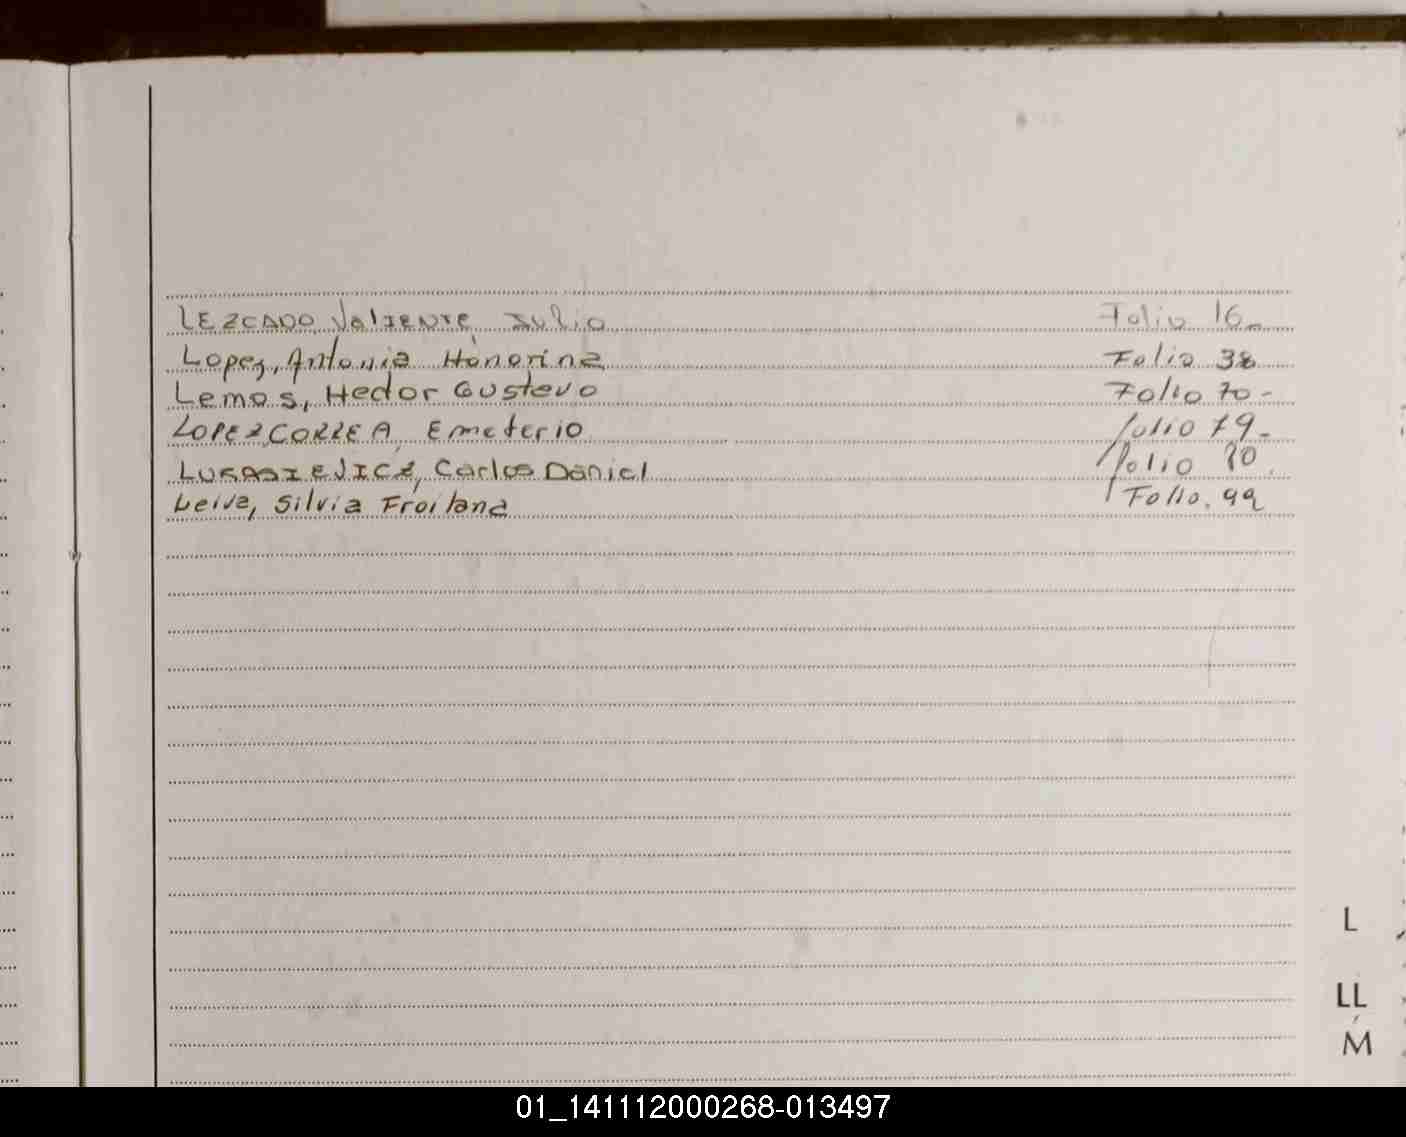 LEZCANO Valiente Julio Folio 16-
Lopez, Antonia Honorina Folio 38
Lemos, Hector Gustavo Folio 70-
LOPEZ CORREA, Emeterio folio 79-
LUKASIEVICZ, Carlos Daniel folio 80
Leiva, Silvia Froilana Folio. 99
L
LL
M
01_141112000268-013497